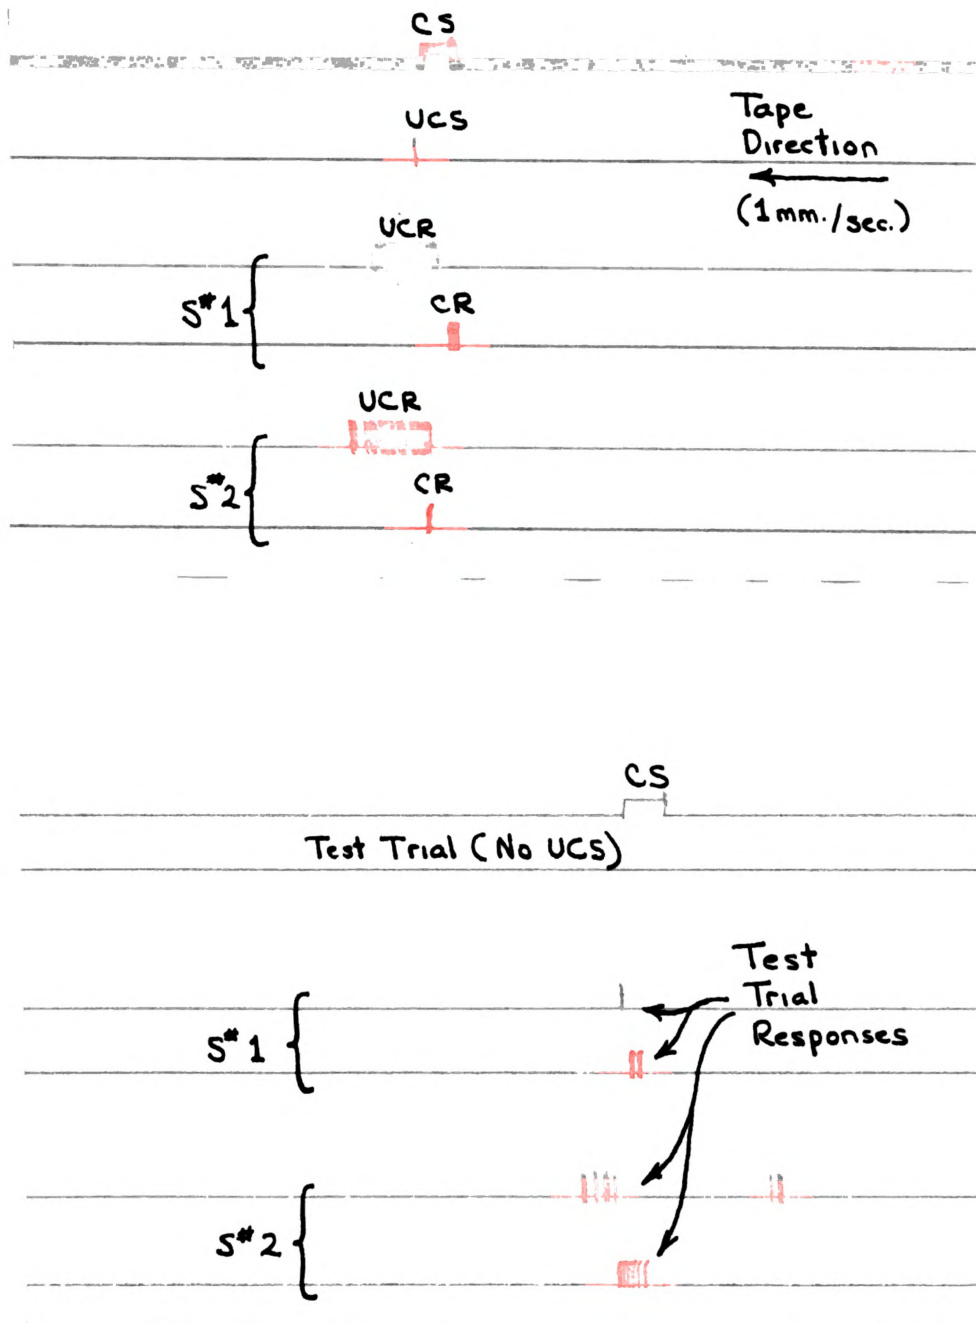 CS
UCS
Tape
Direction
(1mm./sec.)
UCR
S#1
CR
UCR
S#2
CR
CS
Test Trial (No UCS)
Test
Trial
Responses
S#1
S#2